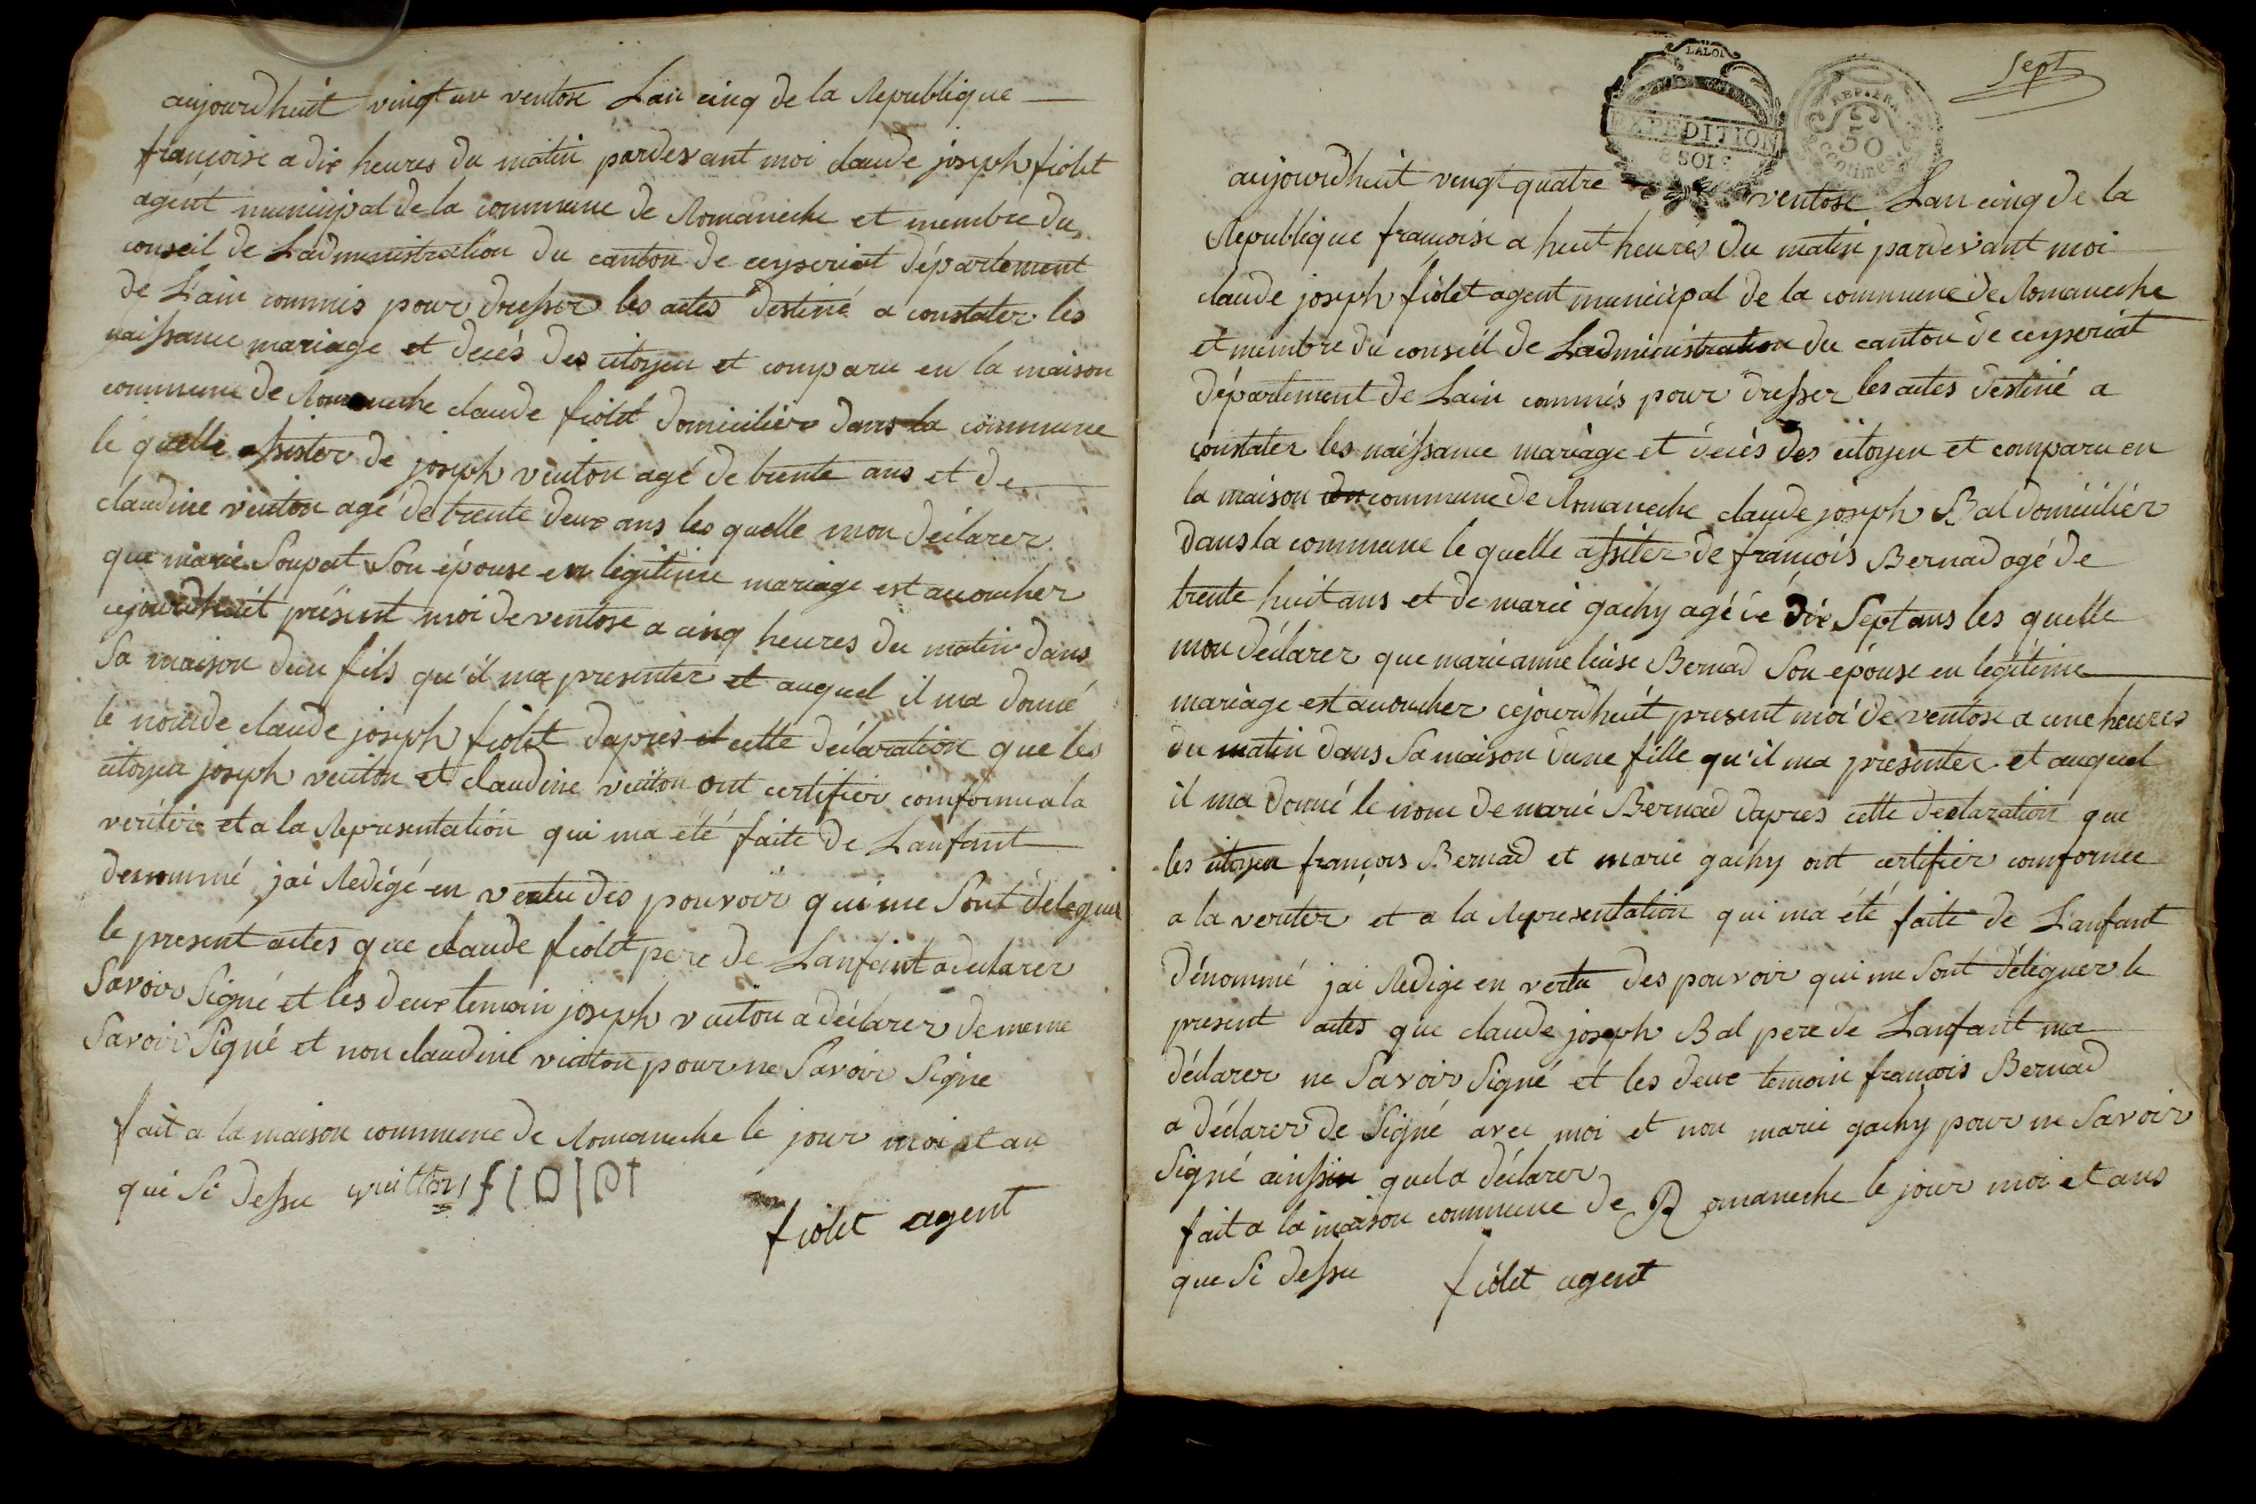 aujourdhuit vingt un ventose Lan cinq de la Republique
françoise a dix heures du matin pardevant moi claude joseph fiolet
agent municipal de la commune de Romaneche et membre du
conseil de Ladministration du canton de ceyseriat département
de Lain commis pour dresser les actes destiné a constater les
naissance mariage et decés des citoyen et comparu en la maison
commune de Romaneche claude fiolet domicilier dans la commune
le quelle assister de joseph vuiton agé de trente ans et de
claudine vuiton agé de trente deux ans les quelle mon déclarer
que marie Soupat Son épouse en legitime mariage est accoucher
cejourdhuit présent moi de ventose a cinq heures du matin dans
Sa maison dun fils qu'il ma presenter et auquel il ma donné
le nom de claude joseph fiolet dapres et cette déclaration que les
citoyen joseph vuiton et claudine vuiton ont certifier comforme a la
veriter et a la Representation qui ma eté faite de Lanfant
denommé jai Redigé en vertu des pouvoir qui me Sont déleguer
le present actes que claude fiolet pere de Lanfant a déclarer
Savoir Signé et les deux temoin joseph vuiton a déclarer de meme
Savoir Signé et non claudine vuiton pour ne Savoir Signe
fait a la maison commune de Romaneche le jour moi et an
qui Si dessu vuitton fiolet
fiolet agent
LALOI
EXPEDITION
8 SOLS
REP. FRA
50
centimes
Sept
aujourdhuit vengt quatre ventose Lan cinq de la
Republique françoise a huit heures du matin pardevant moi
claude joseph fiolet agent municipal de la commune de Romaneche
et membre du conseil de Ladministration du canton de ceyseriat
département de Lain commis pour dresser les actes destiné a
constater les naissance mariage et décés des citoyen et comparu en
la maison commune de Romaneche claude joseph Bal domicilier
dans la commune le quelle assiter de françois Bernad agé de
trente huit ans et de marie gachy agé de dix Sept ans les quelle
mon déclarer que marie anne Bernad Son épouse en legitime
mariage est accoucher cejourdhuit present moi de ventose a une heures
du matin dans Sa maison dune fille qu'il ma presenter et auquel
il ma donné le nom de marie Bernad dapres cette declaration que
les citoyen françois Bernad et marie gachy ont certifier comforme
a la veriter et a la Representation qui ma été faite de Lanfant
dénommé jai Redige en vertu des pouvoir qui me Sont déléguer le
present actes que claude joseph Bal pere de Lanfant ma
déclarer ne Savoir Signé et les deux temoin françois Bernad
a déclarer de Signé avec moi et non marie gachy pour ne Savoir
Signé ainssin quel a déclarer
fait a la maison commune de Romaneche le jour moi et ans
que Si dessu fiolet agent